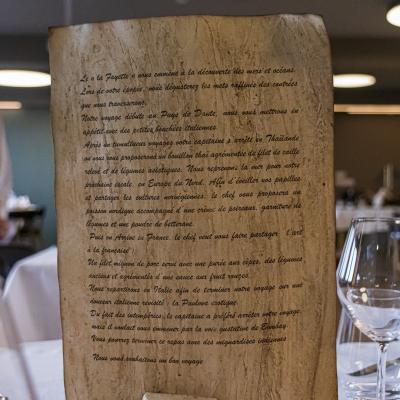 Le « la Fayette » vous emmène à la découverte des mers et océans.
Lors de votre épopée, vous dégusterez les mets raffinés des contrées
que nous traverserons.
Notre voyage débute au Puys de Dante, nous vous mettrons en
appétit avec des petites bouchées italiennes.
Après un tumultueux voyage votre capitaine s'arrête en Thaïlande
où nous vous proposerons un bouillon thaï agrémentée du filet de caille
relevé et de légumes asiatiques. Nous reprenons la mer pour notre
prochaine escale, en Europe du Nord. Afin d'éveiller vos papilles
et partager les cultures norvégiennes, le chef vous proposera un
poisson verdigae accompagné d'une crème de poireaux, garniture de
légumes et une poudre de betterave.
Puis on Arrive en France, le chef veut vous faire partager l'art
à la française
Un filet mignon de porc servi avec une purée aux cèpes, des légumes
anciens et agrémentés d'une sauce aux fruits rouges.
Nous repartirons en Italie afin de terminer notre voyage sur une
douceur italienne revisité : la Pavlova exotique.
Du fait des intempéries, le capitaine a préféré arrêter votre voyage,
mais il voulait vous emmener par la voie gustative de Bombay.
Vous pourrez terminer ce repas avec des mignardises indiennes
Nous vous souhaitons un bon voyage